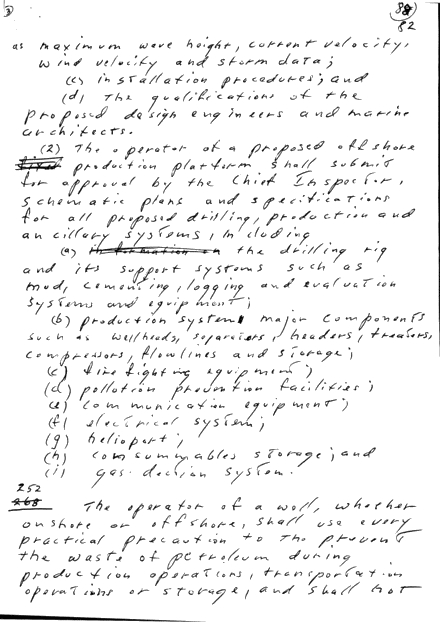 3
88
82
as maximum wave height, current velocity,
wind velocity and storm data;
(c) installation procedures; and
(d) The qualifications of the
proposed design engineers and marine
architects.
(2) The operator of a proposed offshore
fixed production platform shall submit
for approval by the Chief Inspector,
schematic plans and specifications
for all proposed drilling, production and
ancillary systems, including
(a) information on the drilling rig
and its support systems such as
mud, cementing, logging and evaluation
systems and equipment;
(b) production system major components
such as wellheads, separators, headers, treaters,
compressors, flowlines and storage;
(c) fire fighting equipment;
(d) pollution prevention facilities;
(e) communication equipment;
(f) electrical system;
(g) heliport;
(h) consummables storage; and
(i) gas detection system.
252
268 The operator of a well, whether
onshore or offshore, shall use every
practical precaution to the prevent
the waste of petroleum during
production operations, transportation
operations or storage, and shall not